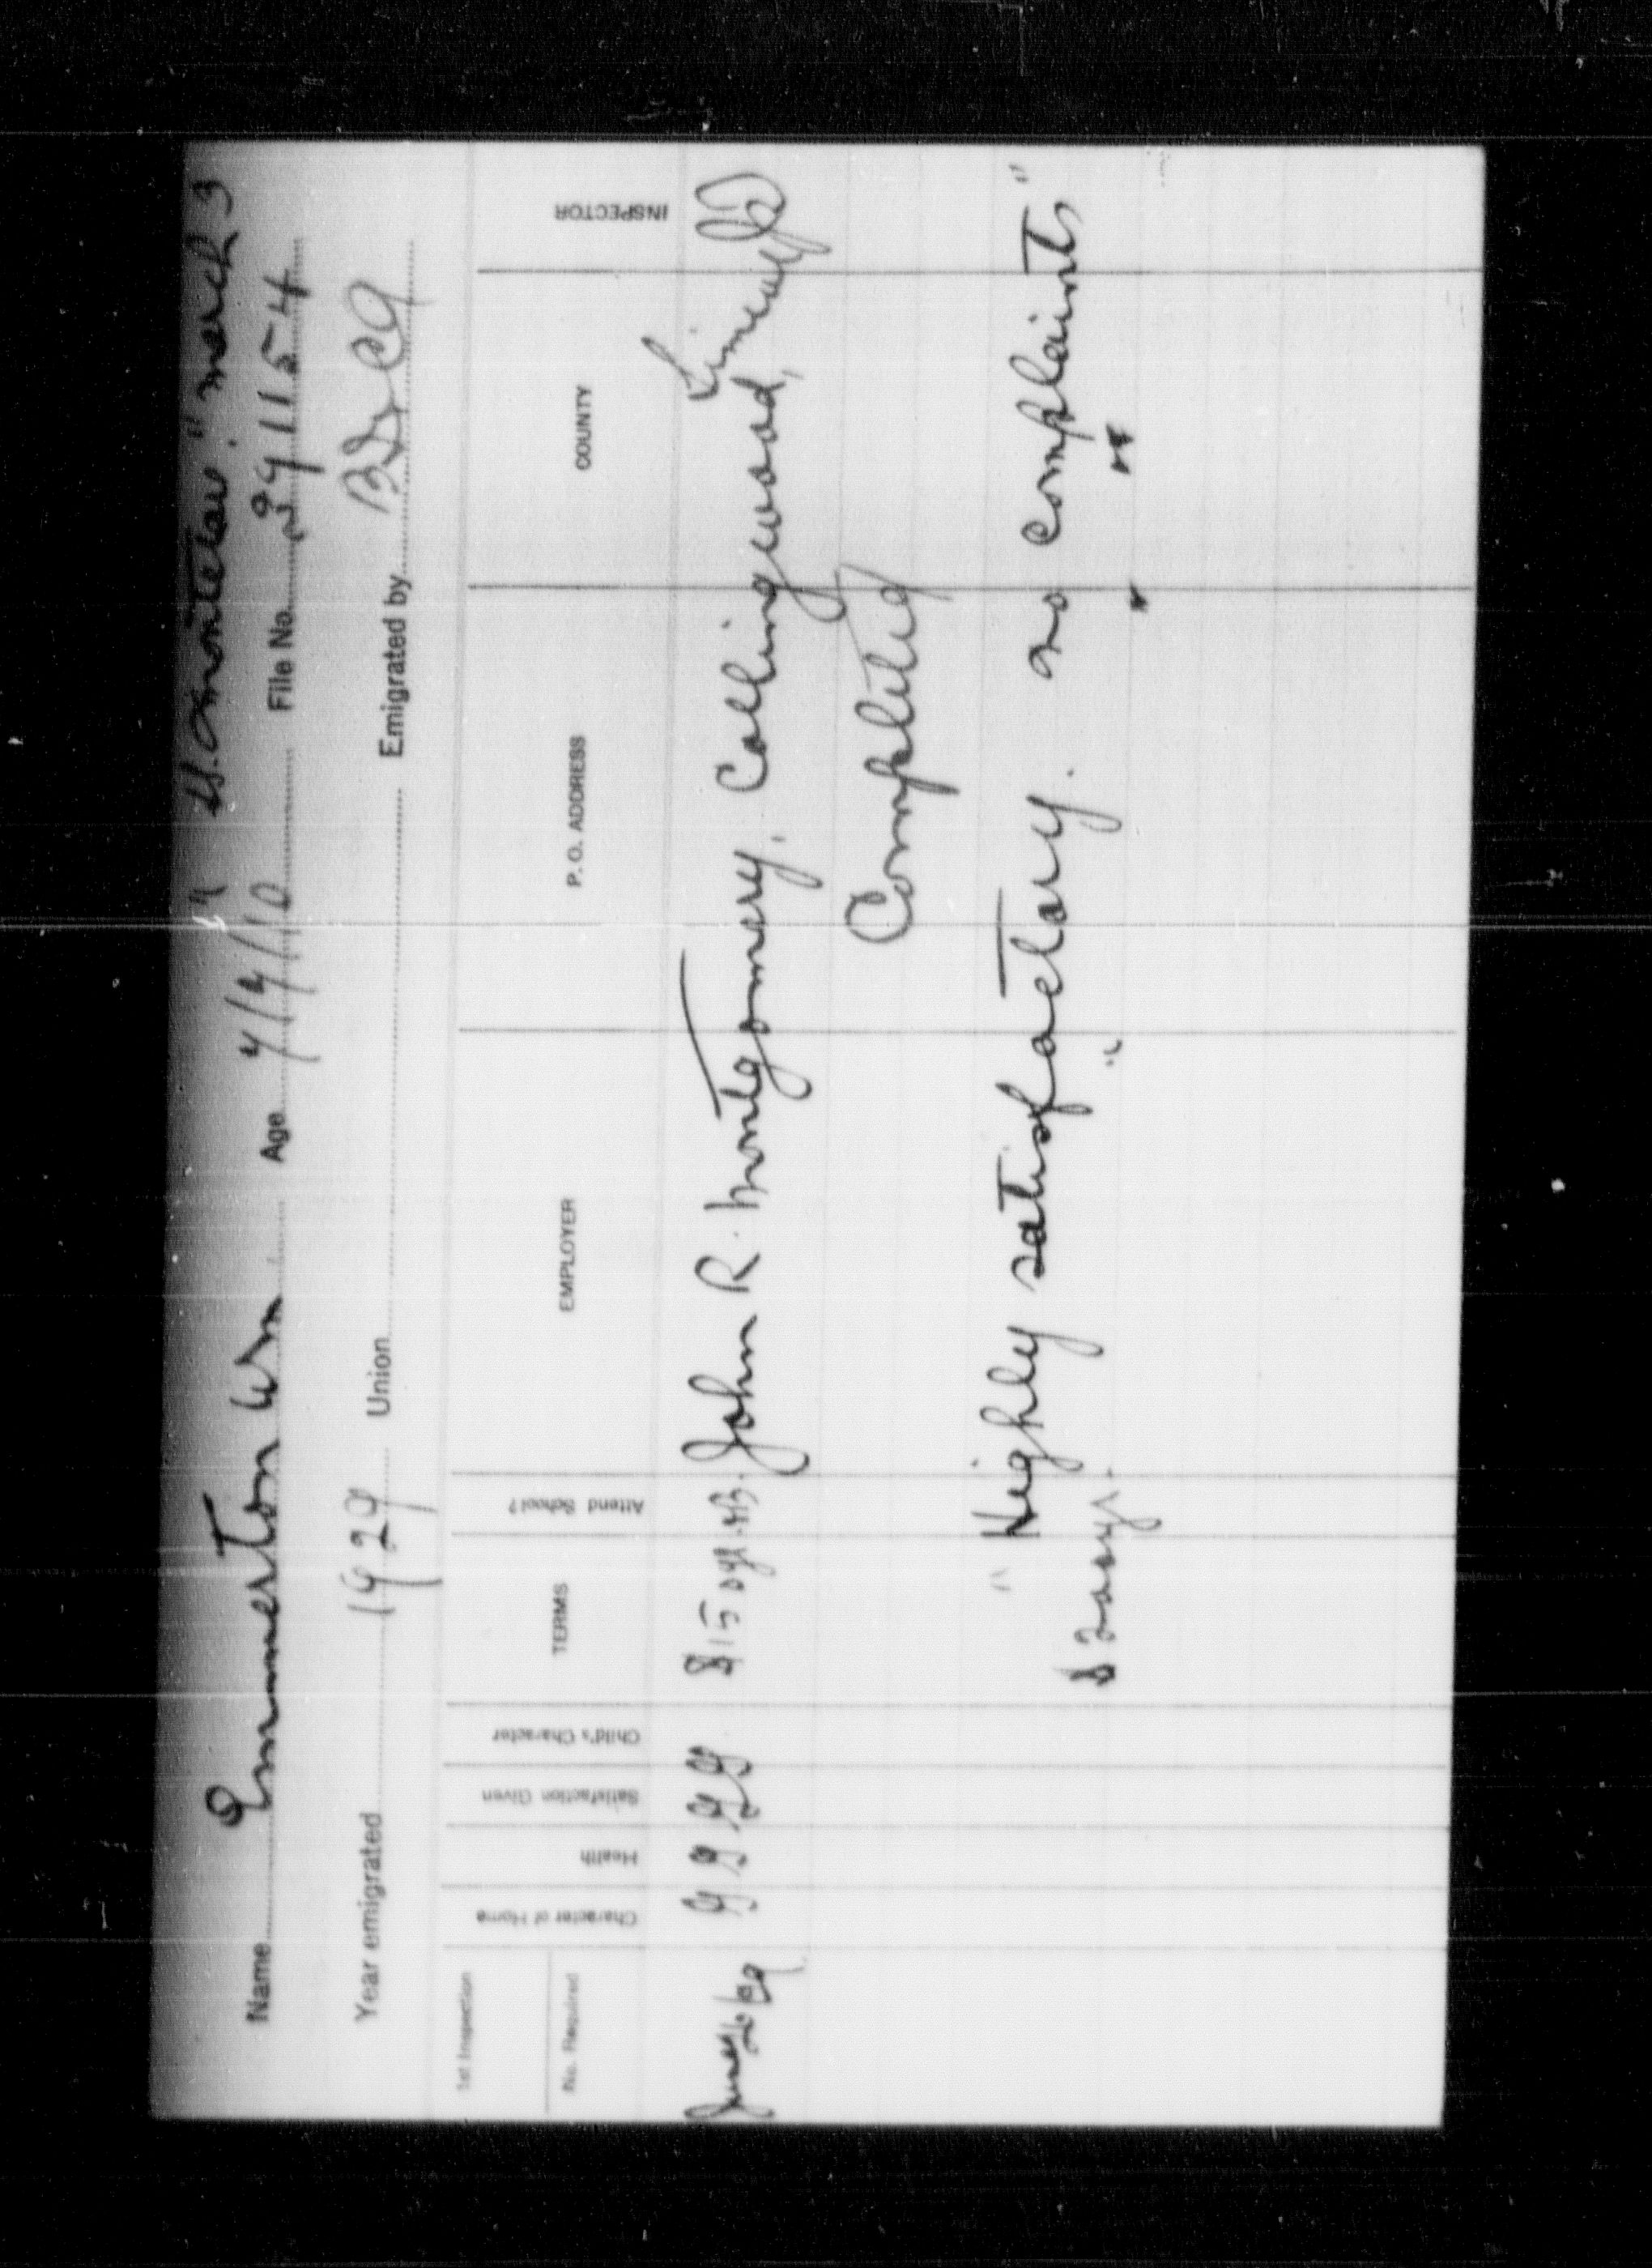 "Montclare." March 3
Name Emmerton Wm Age 7/9/10 File No. 291154
Year emigrated 1929 Union Emigrated by BICA
1st Inspection
No. Required
Character of Home
Health
Satisfaction Given
Child's Character
TERMS
Attend School?
EMPLOYER
P. O. ADDRESS
COUNTY
INSPECTOR
G G G G $15 John R. Montgomery, Collingwood, Simcoe
Completed
"Highly satisfactory. no complaints"